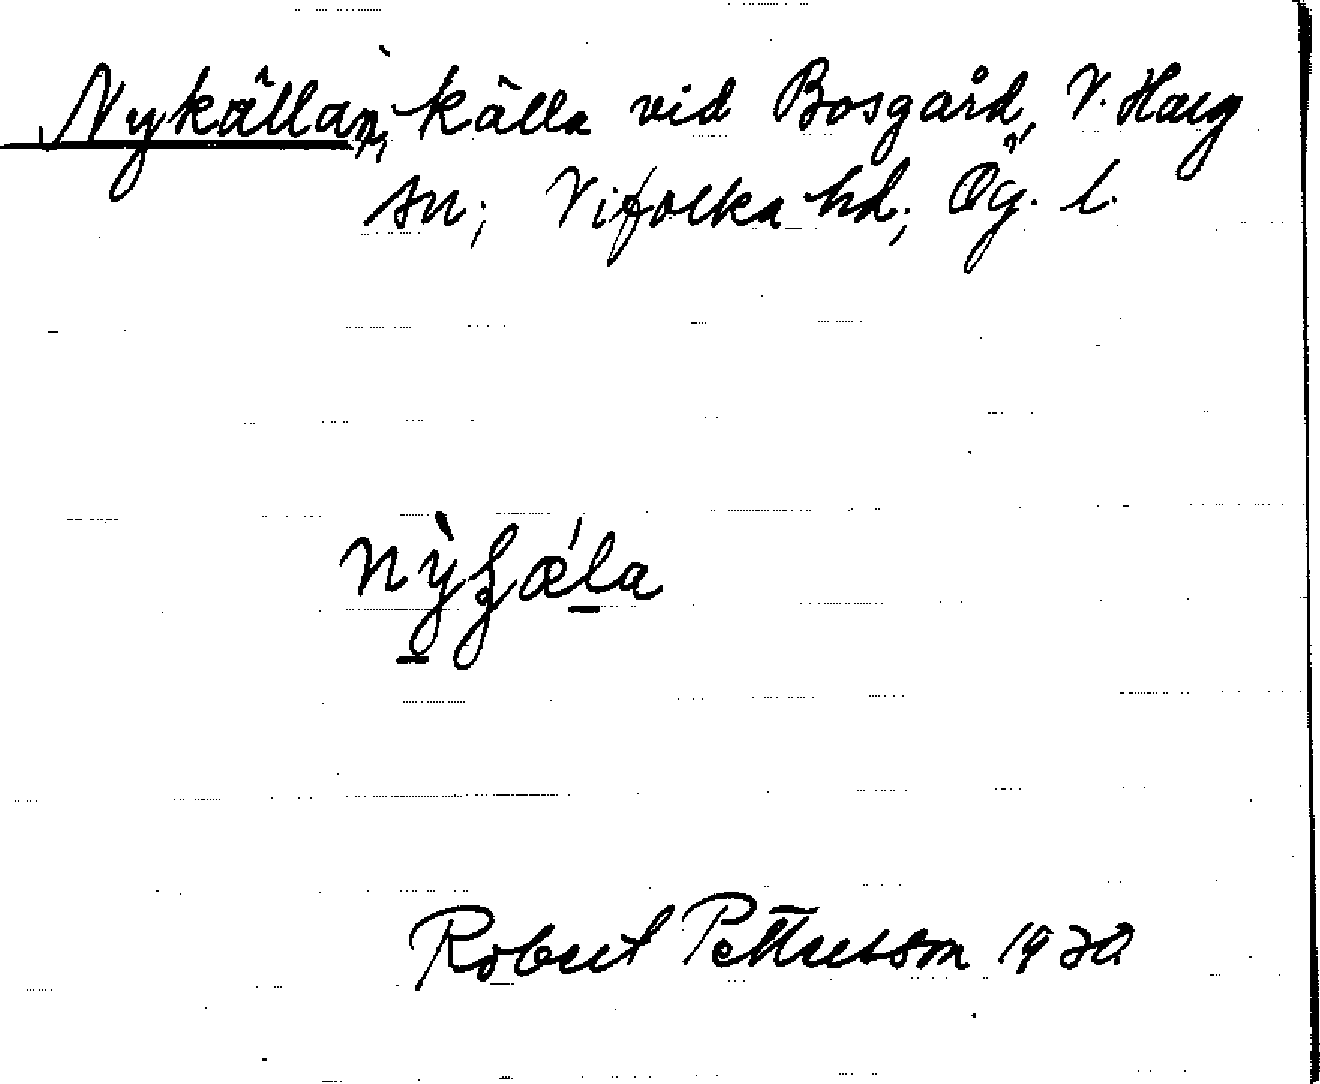 Nykällan, källa vid Bosgård, V. Harg
sn; Vifolka hd; Ög. l.
Robert Pettersson 1930